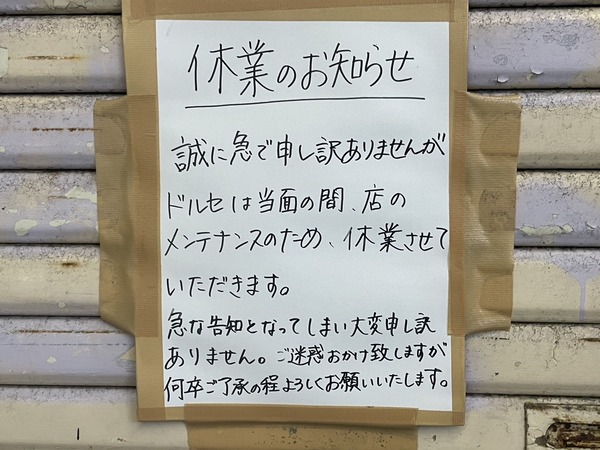 休業のお知らせ
誠に急で申し訳ありませんが
ドルセは当面の間、店の
メンテナンスのため、休業させて
いただきます。
急な告知となってしまい大変申し訳
ありません。ご迷惑おかけ致しますが
何卒ご了承の程よろしくお願いいたします。